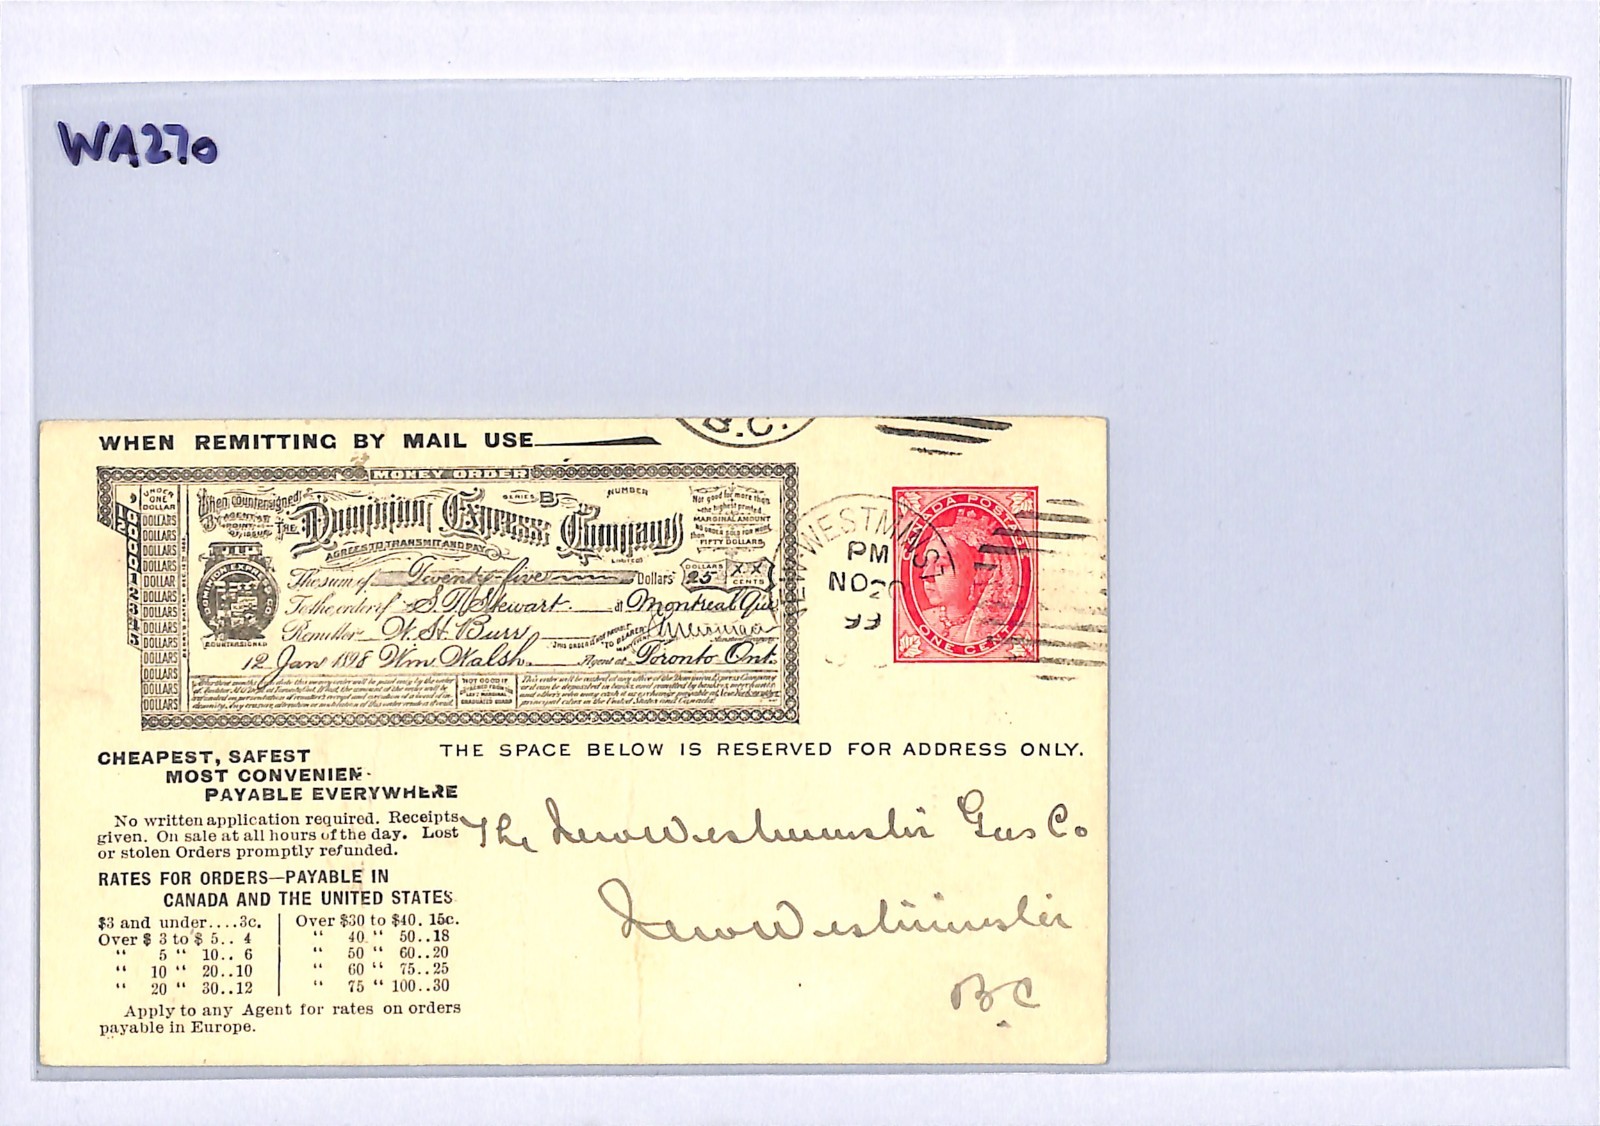 WA270
B.C.
WHEN REMITTING BY MAIL USE
MONEY ORDER
UNDER ONE DOLLAR
DOLLARS
DOLLARS
DOLLARS
DOLLAR
DOLLARS
DOLLARS
DOLLARS
DOLLARS
DOLLARS
DOLLARS
DOLLARS
DOLLARS
When Countersigned
BY AGENT AT POINT OF ISSUE
SERIES B NUMBER
Not good for more than
the highest printed
MARGINAL AMOUNT
FIFTY DOLLARS
THE Dominion Express Company
LIMITED
AGREES TO TRANSMIT AND PAY
The sum of Twenty-five Dollars
DOLLARS 25 XX CENTS
To the order of S. T. Stewart. at Montreal Que
Remitter W. St. Burr
12 Jan 1898 Wm. Walsh. Agent at Toronto Ont.
DOMINION EXPRESS CO
COUNTERSIGNED
CANADA POSTAGE
ONE CENT
NEW WESTMINST
PM
NO 20
99
CHEAPEST, SAFEST
MOST CONVENIEN
PAYABLE EVERYWHERE
THE SPACE BELOW IS RESERVED FOR ADDRESS ONLY.
No written application required. Receipts
given. On sale at all hours of the day. Lost
or stolen Orders promptly refunded.
RATES FOR ORDERS—PAYABLE IN
CANADA AND THE UNITED STATES
$3 and under....3c. Over $30 to $40. 15c.
Over $ 3 to $ 5.. 4 " 40 " 50..18
" 5 " 10.. 6 " 50 " 60..20
" 10 " 20..10 " 60 " 75..25
" 20 " 30..12 " 75 " 100..30
Apply to any Agent for rates on orders
payable in Europe.
The New Westminster Gas Co
New Westminster
B.C